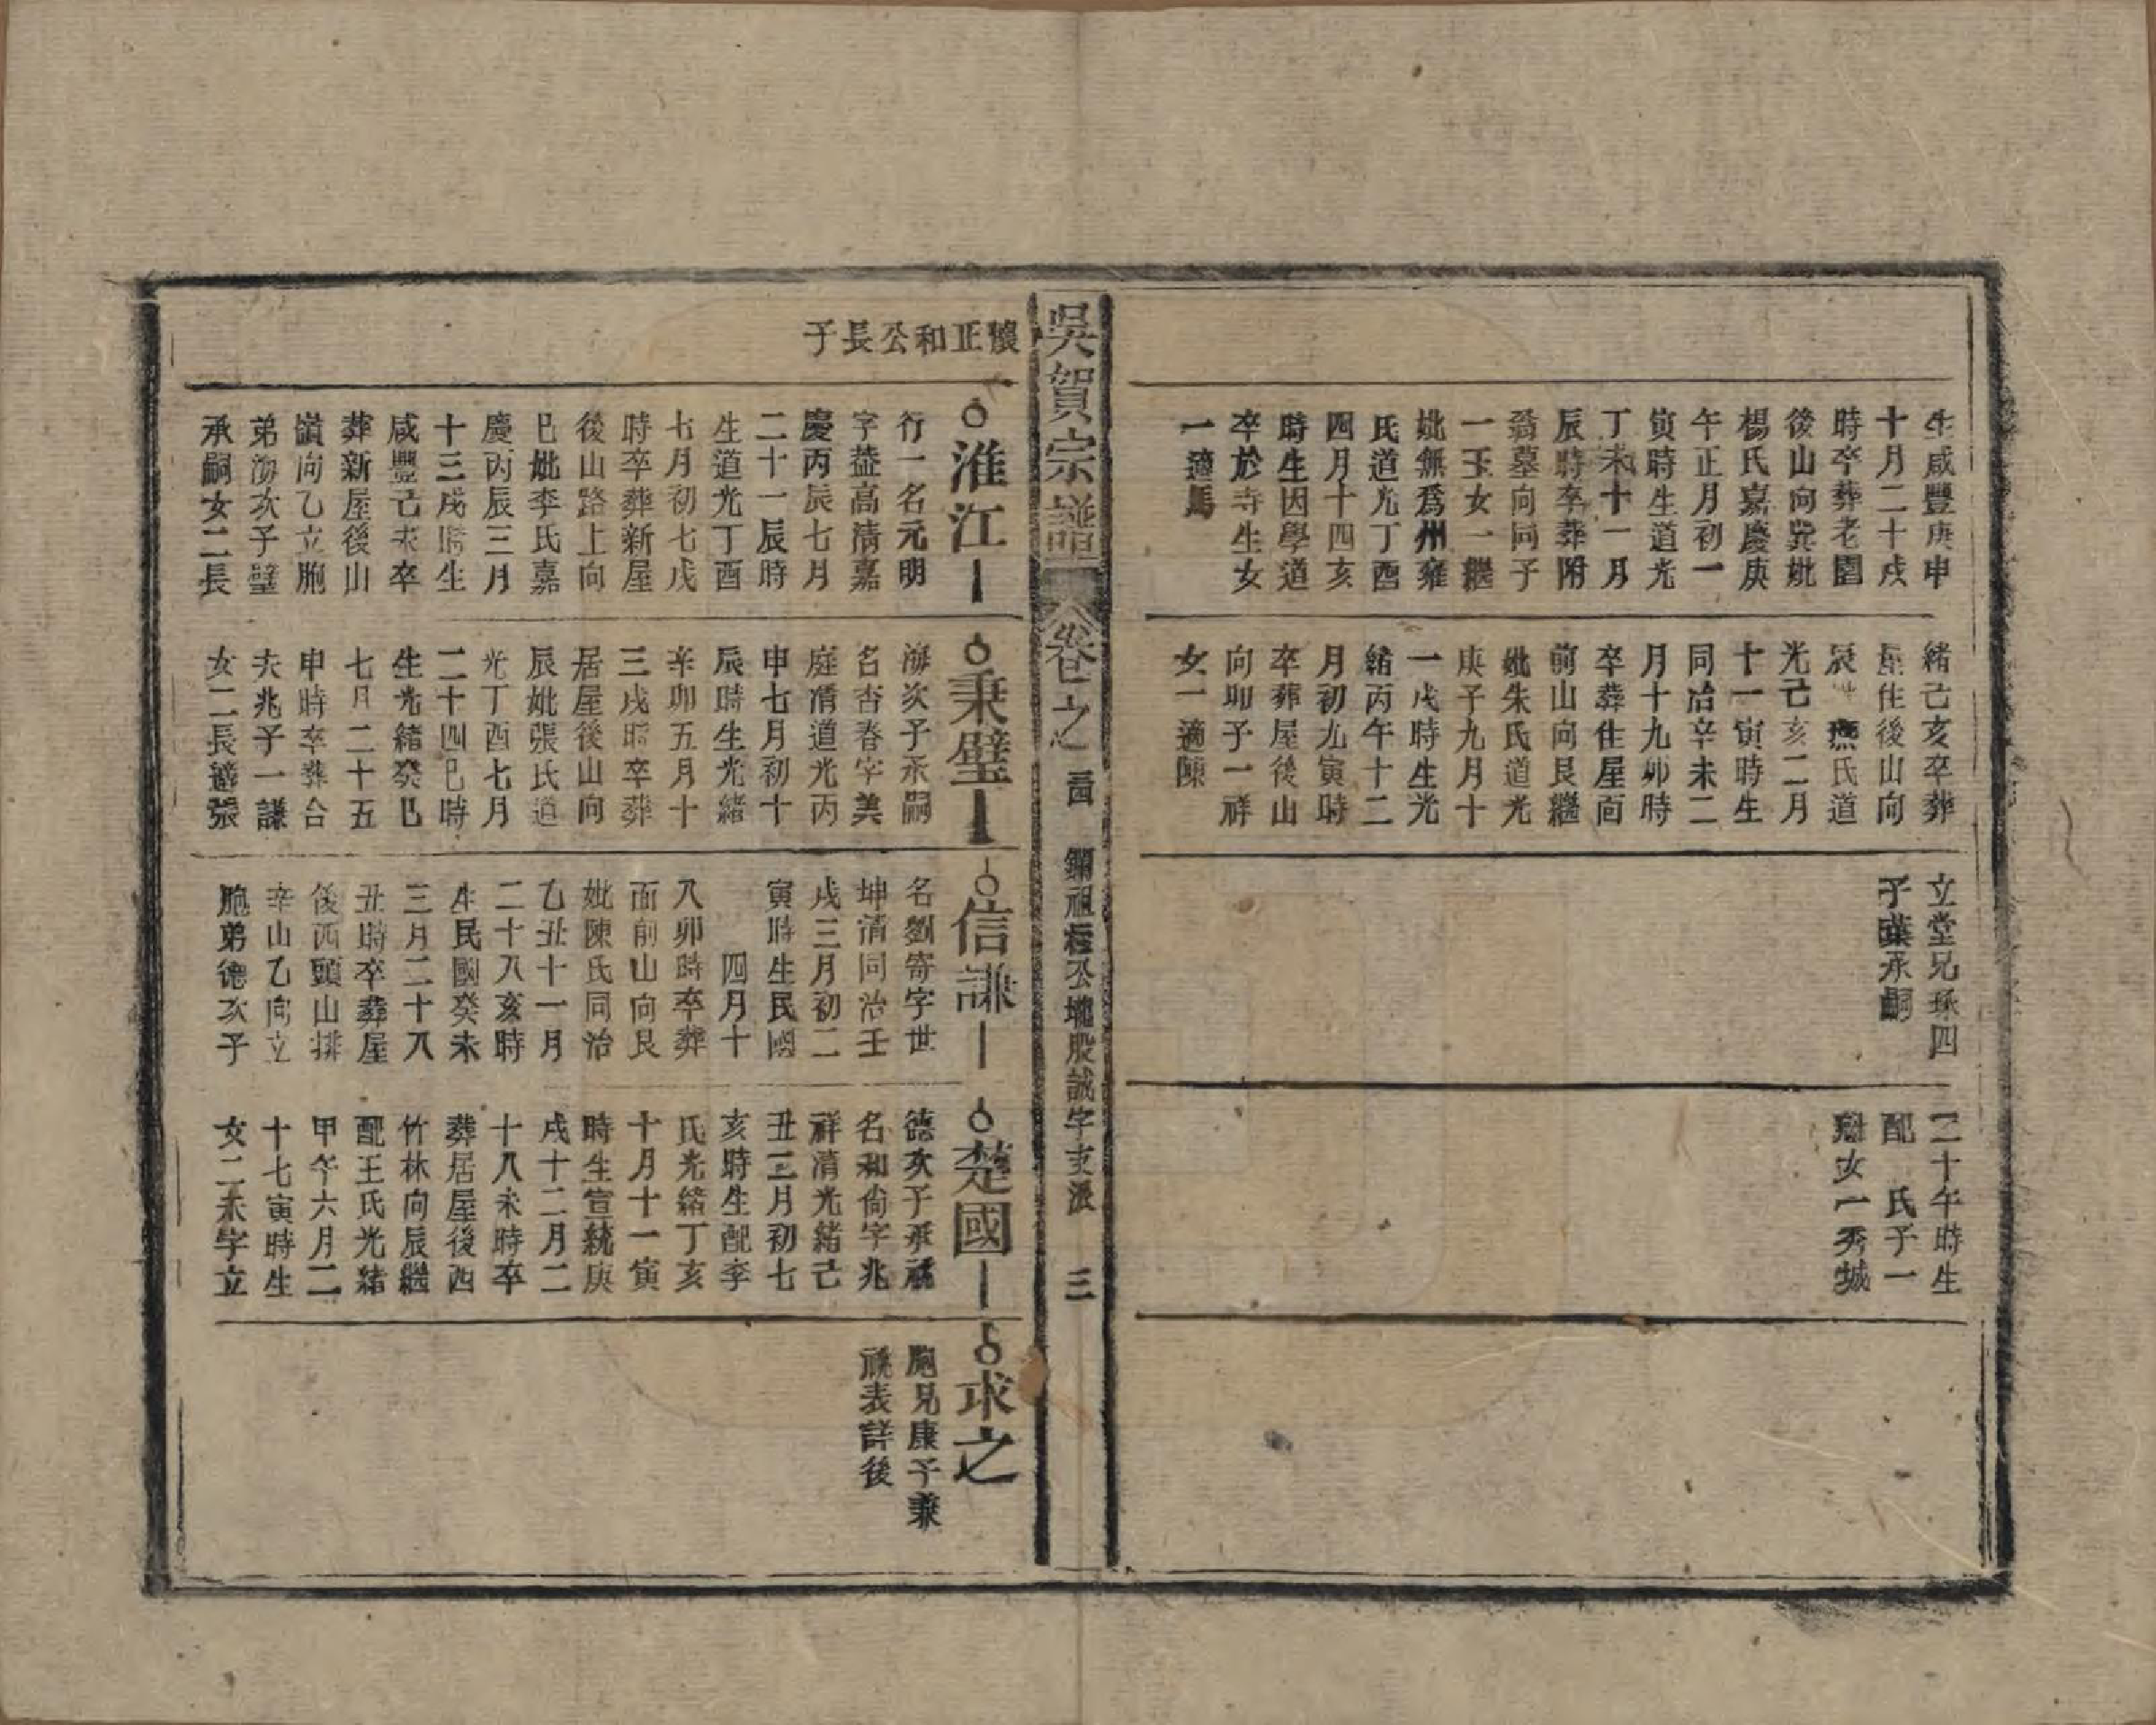 生咸豐庚申
十月二十戌
時卒葬老園
後山向巽妣
楊氏嘉慶庚
午正月初一
寅時生道光
丁未十一月
辰時卒葬附
翁墓向同子
一玉女一繼
妣無爲州雍
氏道光丁酉
四月十四亥
時生因學道
卒於寺生女
一適馬
緒己亥卒葬
屋住後山向
辰 燕氏道
光己亥二月
十一寅時生
同治辛未二
月十九卯時
卒葬住屋面
前山向艮繼
妣朱氏道光
庚子九月十
一戌時生光
緒丙午十二
月初九寅時
卒葬屋後山
向卯子一祥
女一適陳
立堂兄孫四
子 承嗣
二十午時生
配 氏子一
女一秀城
吳賀宗譜
卷之 三四 公 股誠字支派 三
正和公長子
淮江
行一名元明
字益高清嘉
慶丙辰七月
二十一辰時
生道光丁酉
七月初七戌
時卒葬新屋
後山路上向
巳妣李氏嘉
慶丙辰三月
十三戌時生
咸豐己未卒
葬新屋後山
嶺向乙立胞
弟海次子璧
承嗣女二長
秉璧
海次子承嗣
名杏春字美
庭清道光丙
申七月初十
辰時生光緒
辛卯五月十
三戌時卒葬
居屋後山向
辰妣張氏道
光丁酉七月
二十四巳時
生光緒癸巳
七月二十五
申時卒葬合
夫兆子一謙
女二長適張
信謙
名劉寄字世
坤清同治壬
戌三月初二
寅時生民國
四月十
八卯時卒葬
面前山向艮
妣陳氏同治
乙丑十一月
二十八亥時
生民國癸未
三月二十八
丑時卒葬屋
後西頭山排
辛山乙向立
胞弟德次子
楚國
德次子承祧
名和尙字兆
祥清光緒己
丑三月初七
亥時生配李
氏光緒丁亥
十月十一寅
時生宣統庚
戌十二月二
十八未時卒
葬居屋後西
竹林向辰繼
配王氏光緒
甲午六月二
十七寅時生
女二未字立
求之
胞兄康子兼
祧表詳後